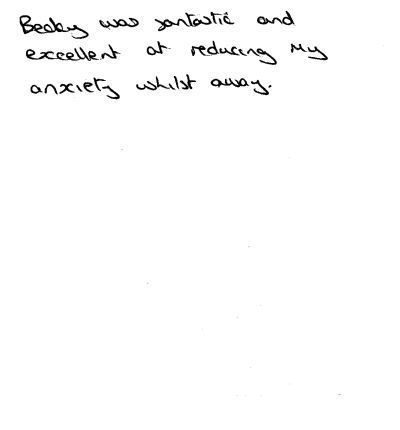 Becky was fantastic and
excellent at reducing my
anxiety whilst away.